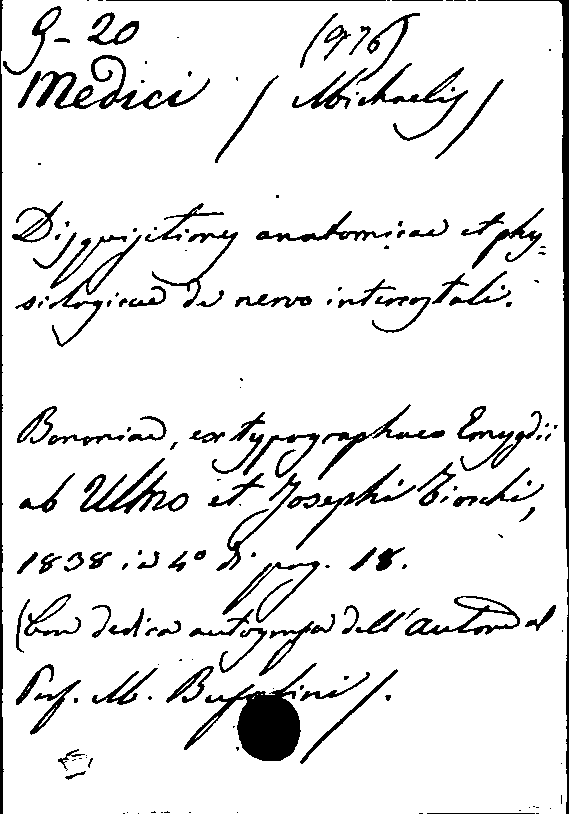 9-20 (976)
Medici (Michaelis)
Disquisitiones anatomicae et phy=
siologicae de nervo intercostali.
Bononiae, ex typographaeo Emygdii
ab Ulmo et Josephi Tiocchi,
1838 in 4º di pag. 18.
(Con dedica autografa dell'autore al
Prof. M. Bufalini).